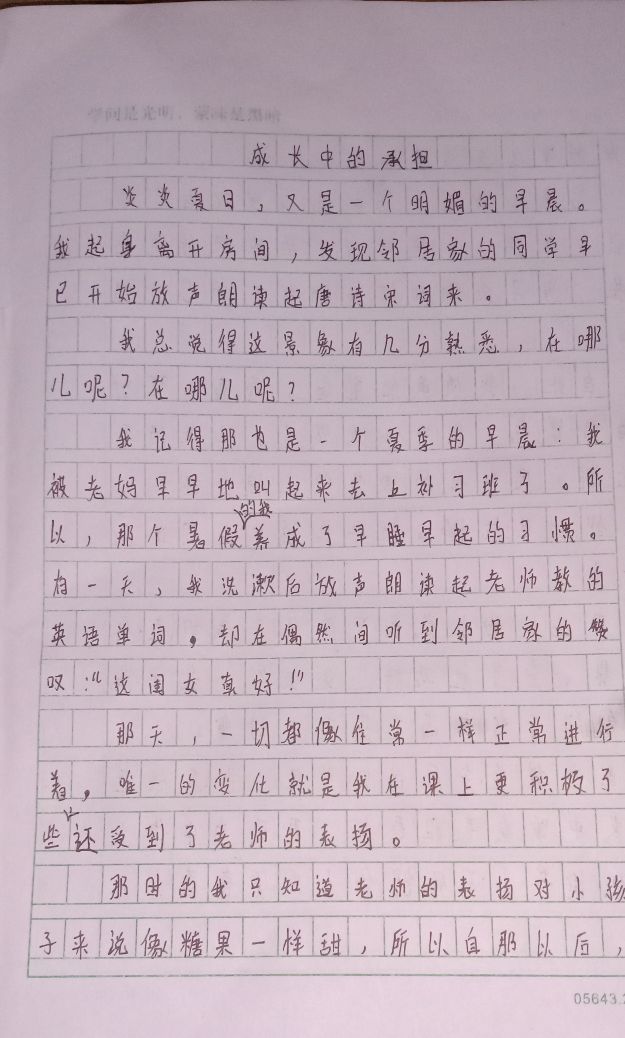 学问是光明，蒙昧是黑暗
成长中的承担
炎炎夏日，又是一个明媚的早晨。
我起身离开房间，发现邻居家的同学早
已开始放声朗读起唐诗宋词来。
我总说得这景象有几分熟悉，在哪
儿呢？在哪儿呢？
我记得那也是一个夏季的早晨：我
被老妈早早地叫起来去上补习班了。所
以，那个暑假的我养成了早睡早起的习惯。
有一天，我洗漱后放声朗读起老师教的
英语单词，却在偶然间听到邻居家的赞
叹：“这闺女真好！”
那天，一切都像往常一样正常进行
着，唯一的变化就是我在课上更积极了
些，还受到了老师的表扬。
那时的我只知道老师的表扬对小孩
子来说像糖果一样甜，所以自那以后，